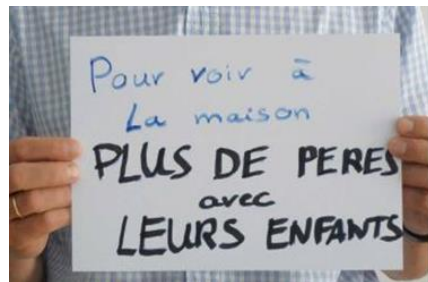 Pour voir à
La maison
PLUS DE PERES
avec
LEURS ENFANTS